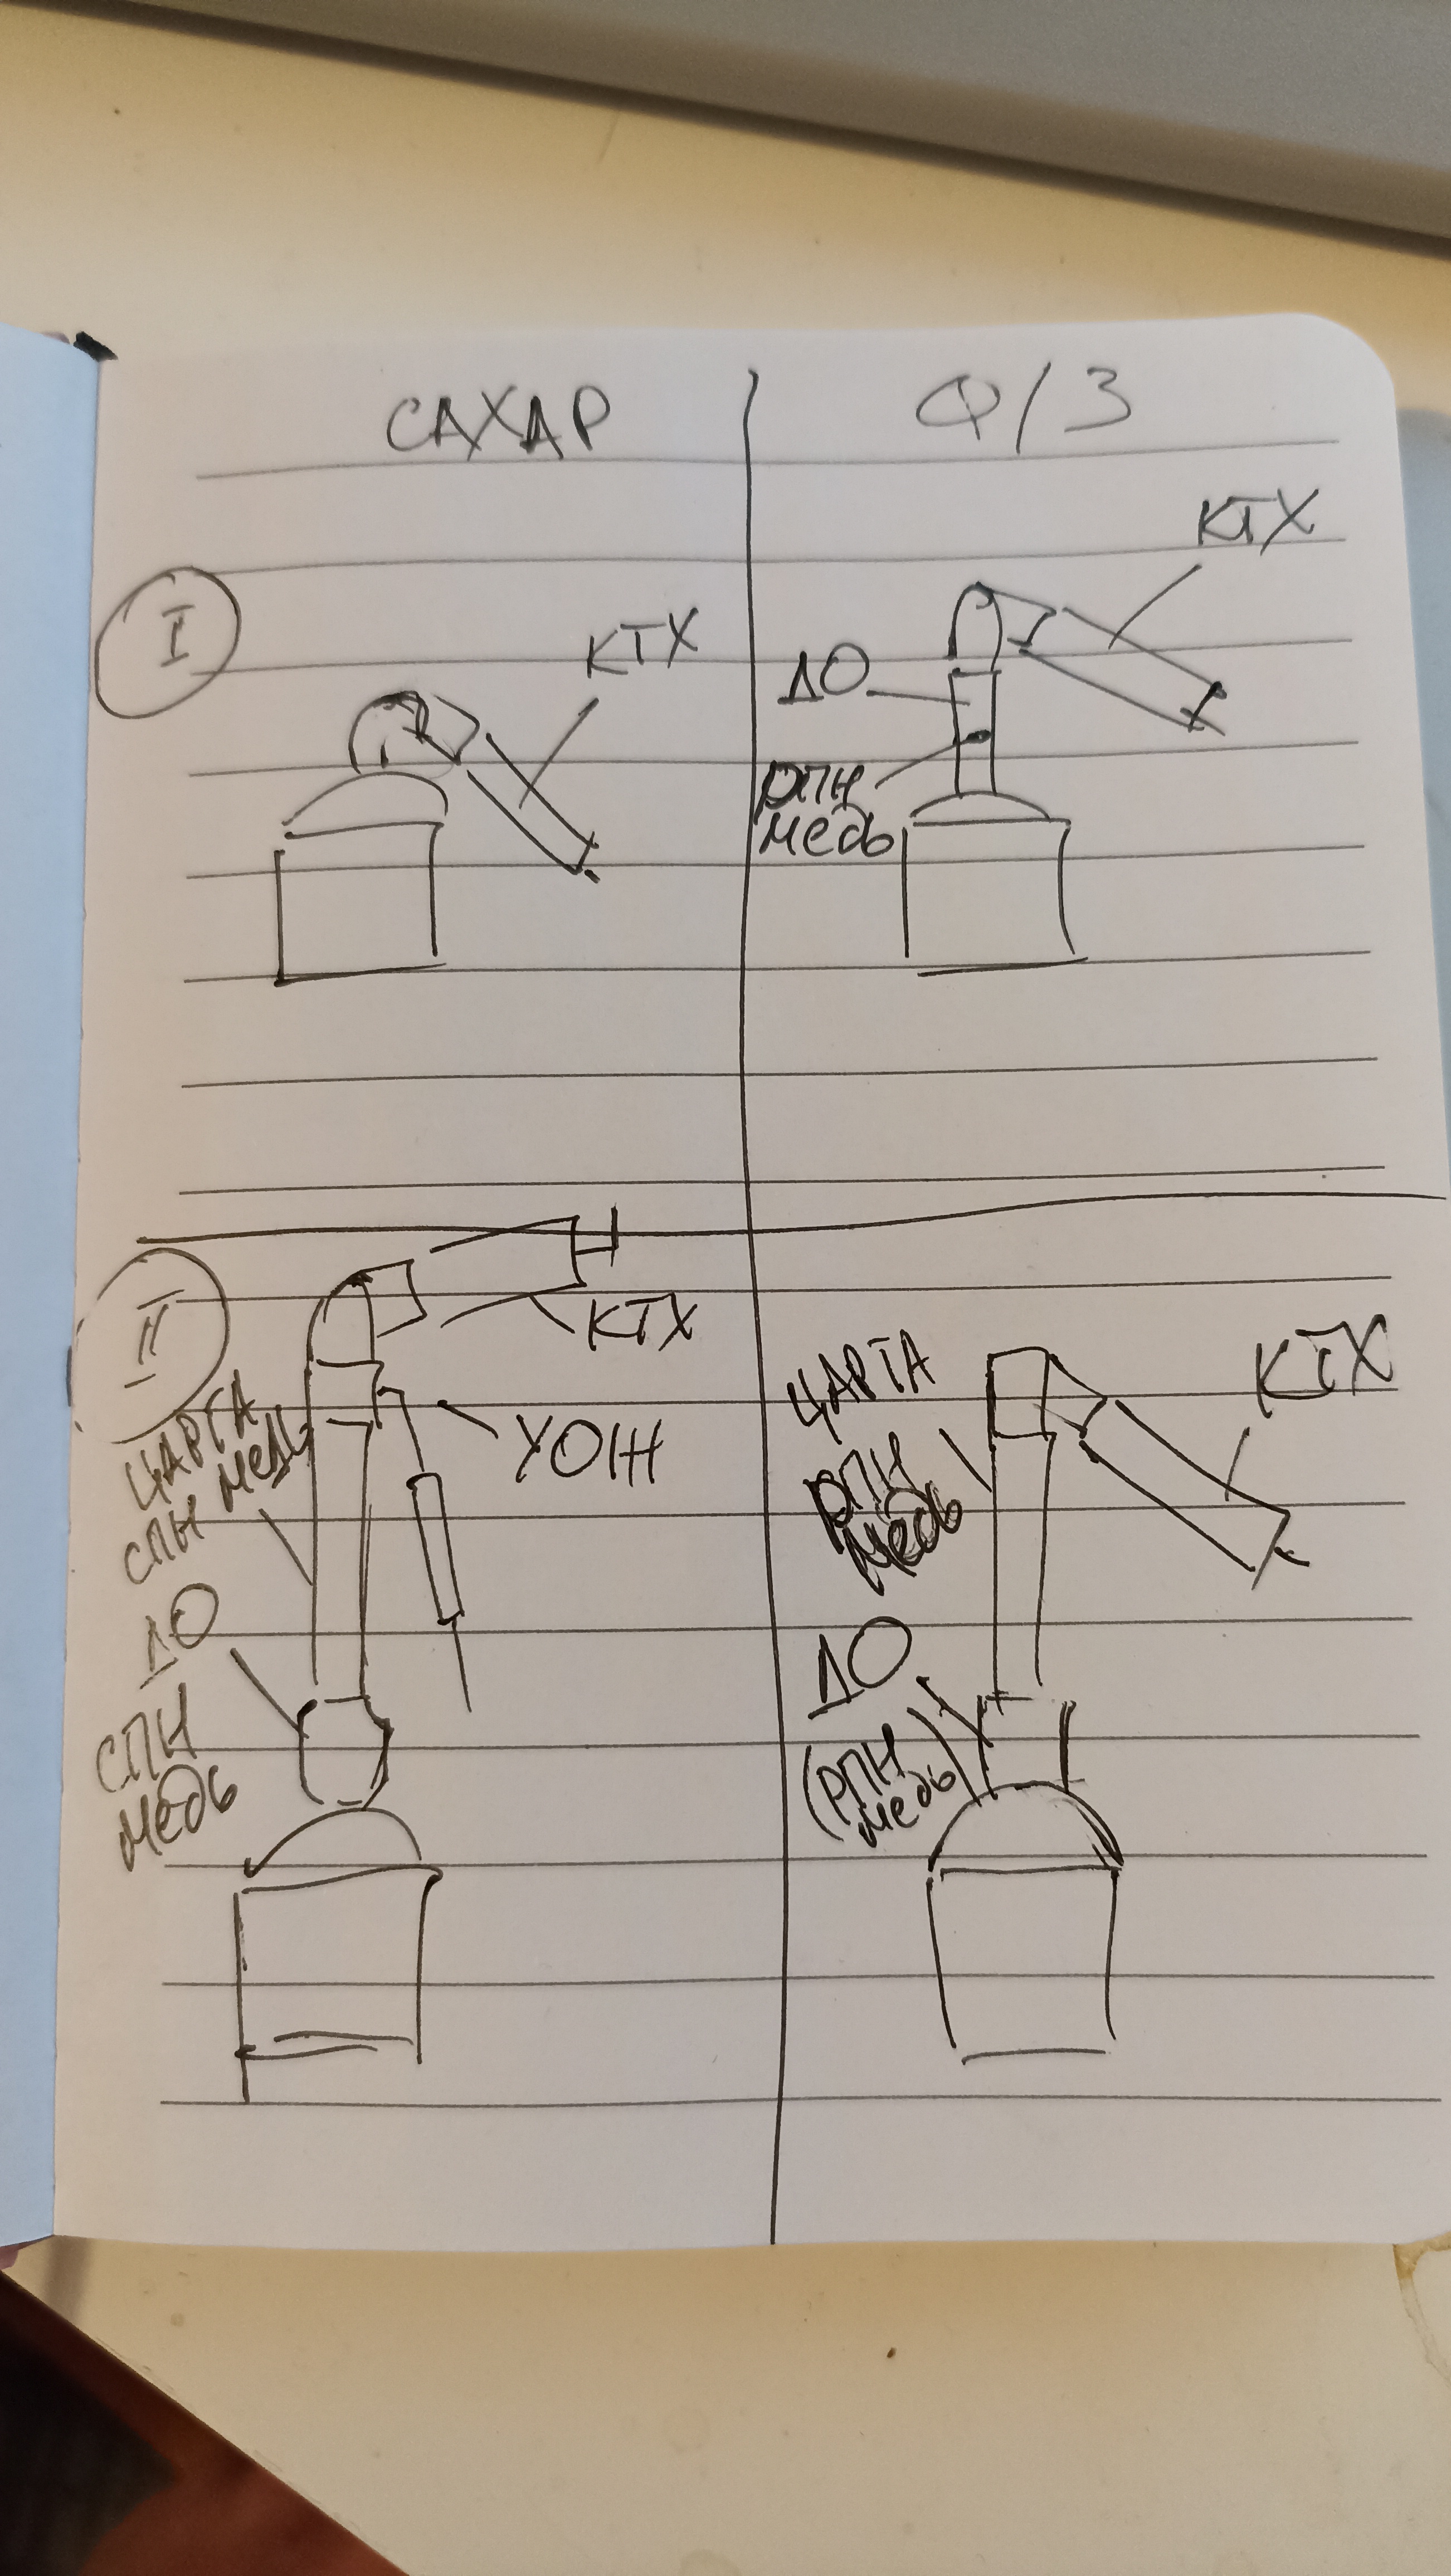 САХАР
Ф/З
I
КТХ
КТХ
ДО
РПН
медь
II
КТХ
УОЖ
ЦАРГА
СПН медь
ДО
СПН
медь
ЦАРГА
РПН
медь
КТХ
ДО
(РПН
медь)